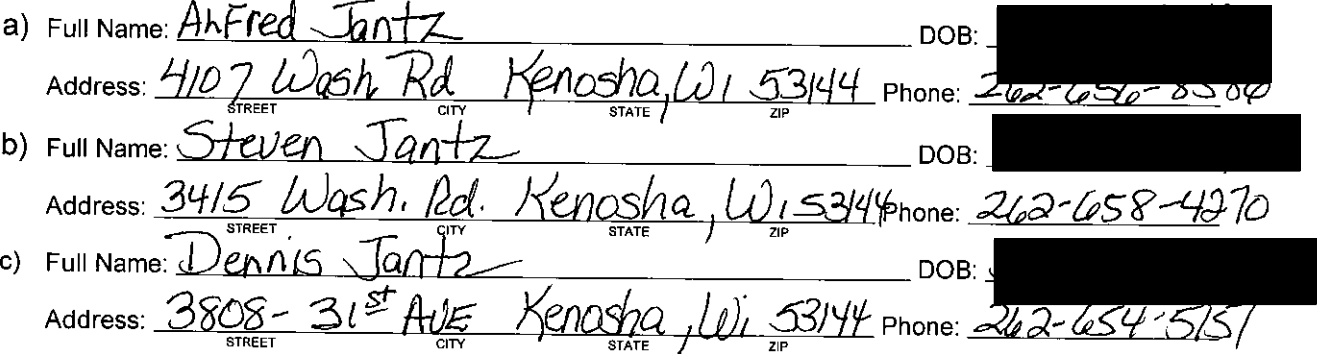 a) Full Name: AhFred Jantz DOB:
Address: 4107 Wash Rd Kenosha, Wi 53144 Phone: 262-656-
STREET CITY STATE ZIP
b) Full Name: Steven Jantz DOB:
Address: 3415 Wash. Rd. Kenosha, Wi 53144 Phone: 262-658-4270
STREET CITY STATE ZIP
c) Full Name: Dennis Jantz DOB:
Address: 3808- 31st AVE Kenosha, Wi 53144 Phone: 262-654-5151
STREET CITY STATE ZIP